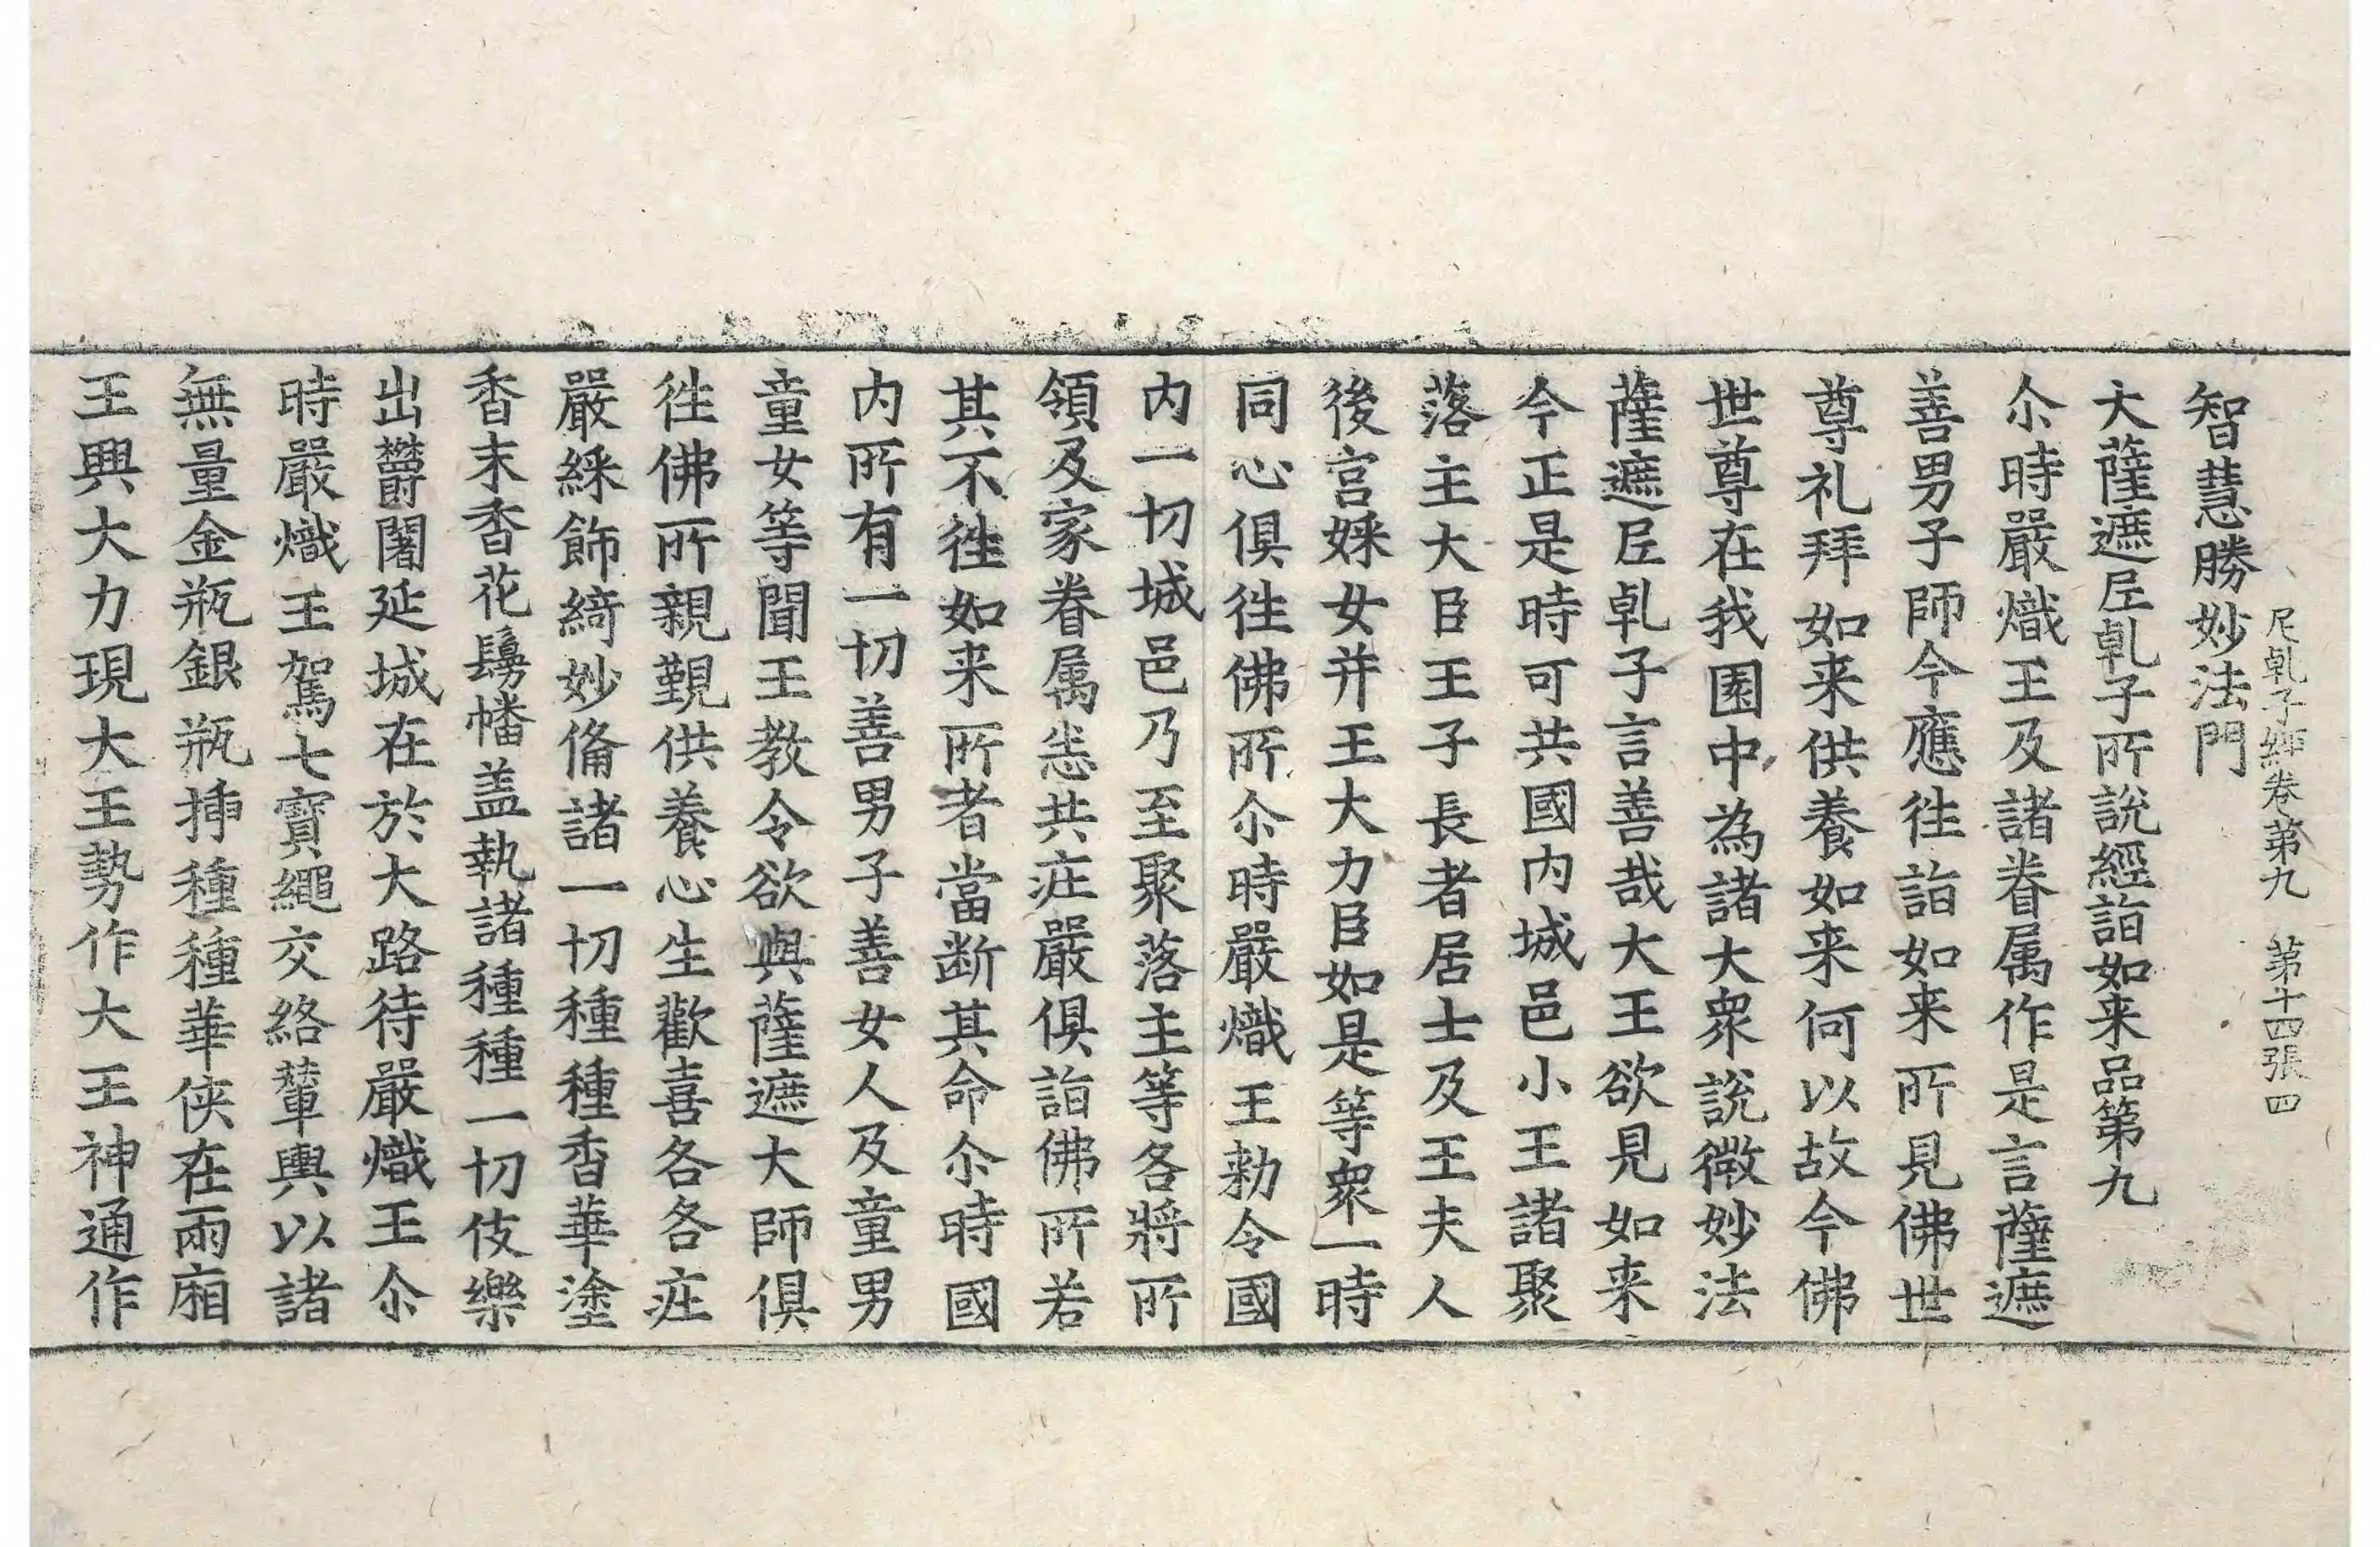 尼乹子經卷第九　第十四張　四
智慧勝妙法門
大薩遮𡰱乹子所說經詣如来品第九
尒時嚴熾王及諸眷属作是言薩遮
善男子師今應徃詣如来所見佛世
尊礼拜如来供養如来何以故今佛
世尊在我園中為諸大衆說微妙法
薩遮𡰱乹子言善哉大王欲見如来
今正是時可共國内城邑小王諸聚
落主大臣王子長者居士及王夫人
後宫婇女并王大力臣如是等衆一時
同心俱徃佛所尒時嚴熾王勑令國
内一切城邑乃至聚落主等各將所
領及家眷属悉共庄嚴俱詣佛所若
其不徃如来所者當断其命尒時國
内所有一切善男子善女人及童男
童女等聞王教令欲與薩遮大師俱
徃佛所親覲供養心生歡喜各各庄
嚴綵飾綺妙俻諸一切種種香華塗
香末香花鬘幡盖執諸種種一切伎樂
出欝闍延城在於大路待嚴熾王尒
時嚴熾王駕七寶繩交絡輦輿以諸
無量金瓶銀瓶揷種種華俠在兩廂
王興大力現大王勢作大王神通作